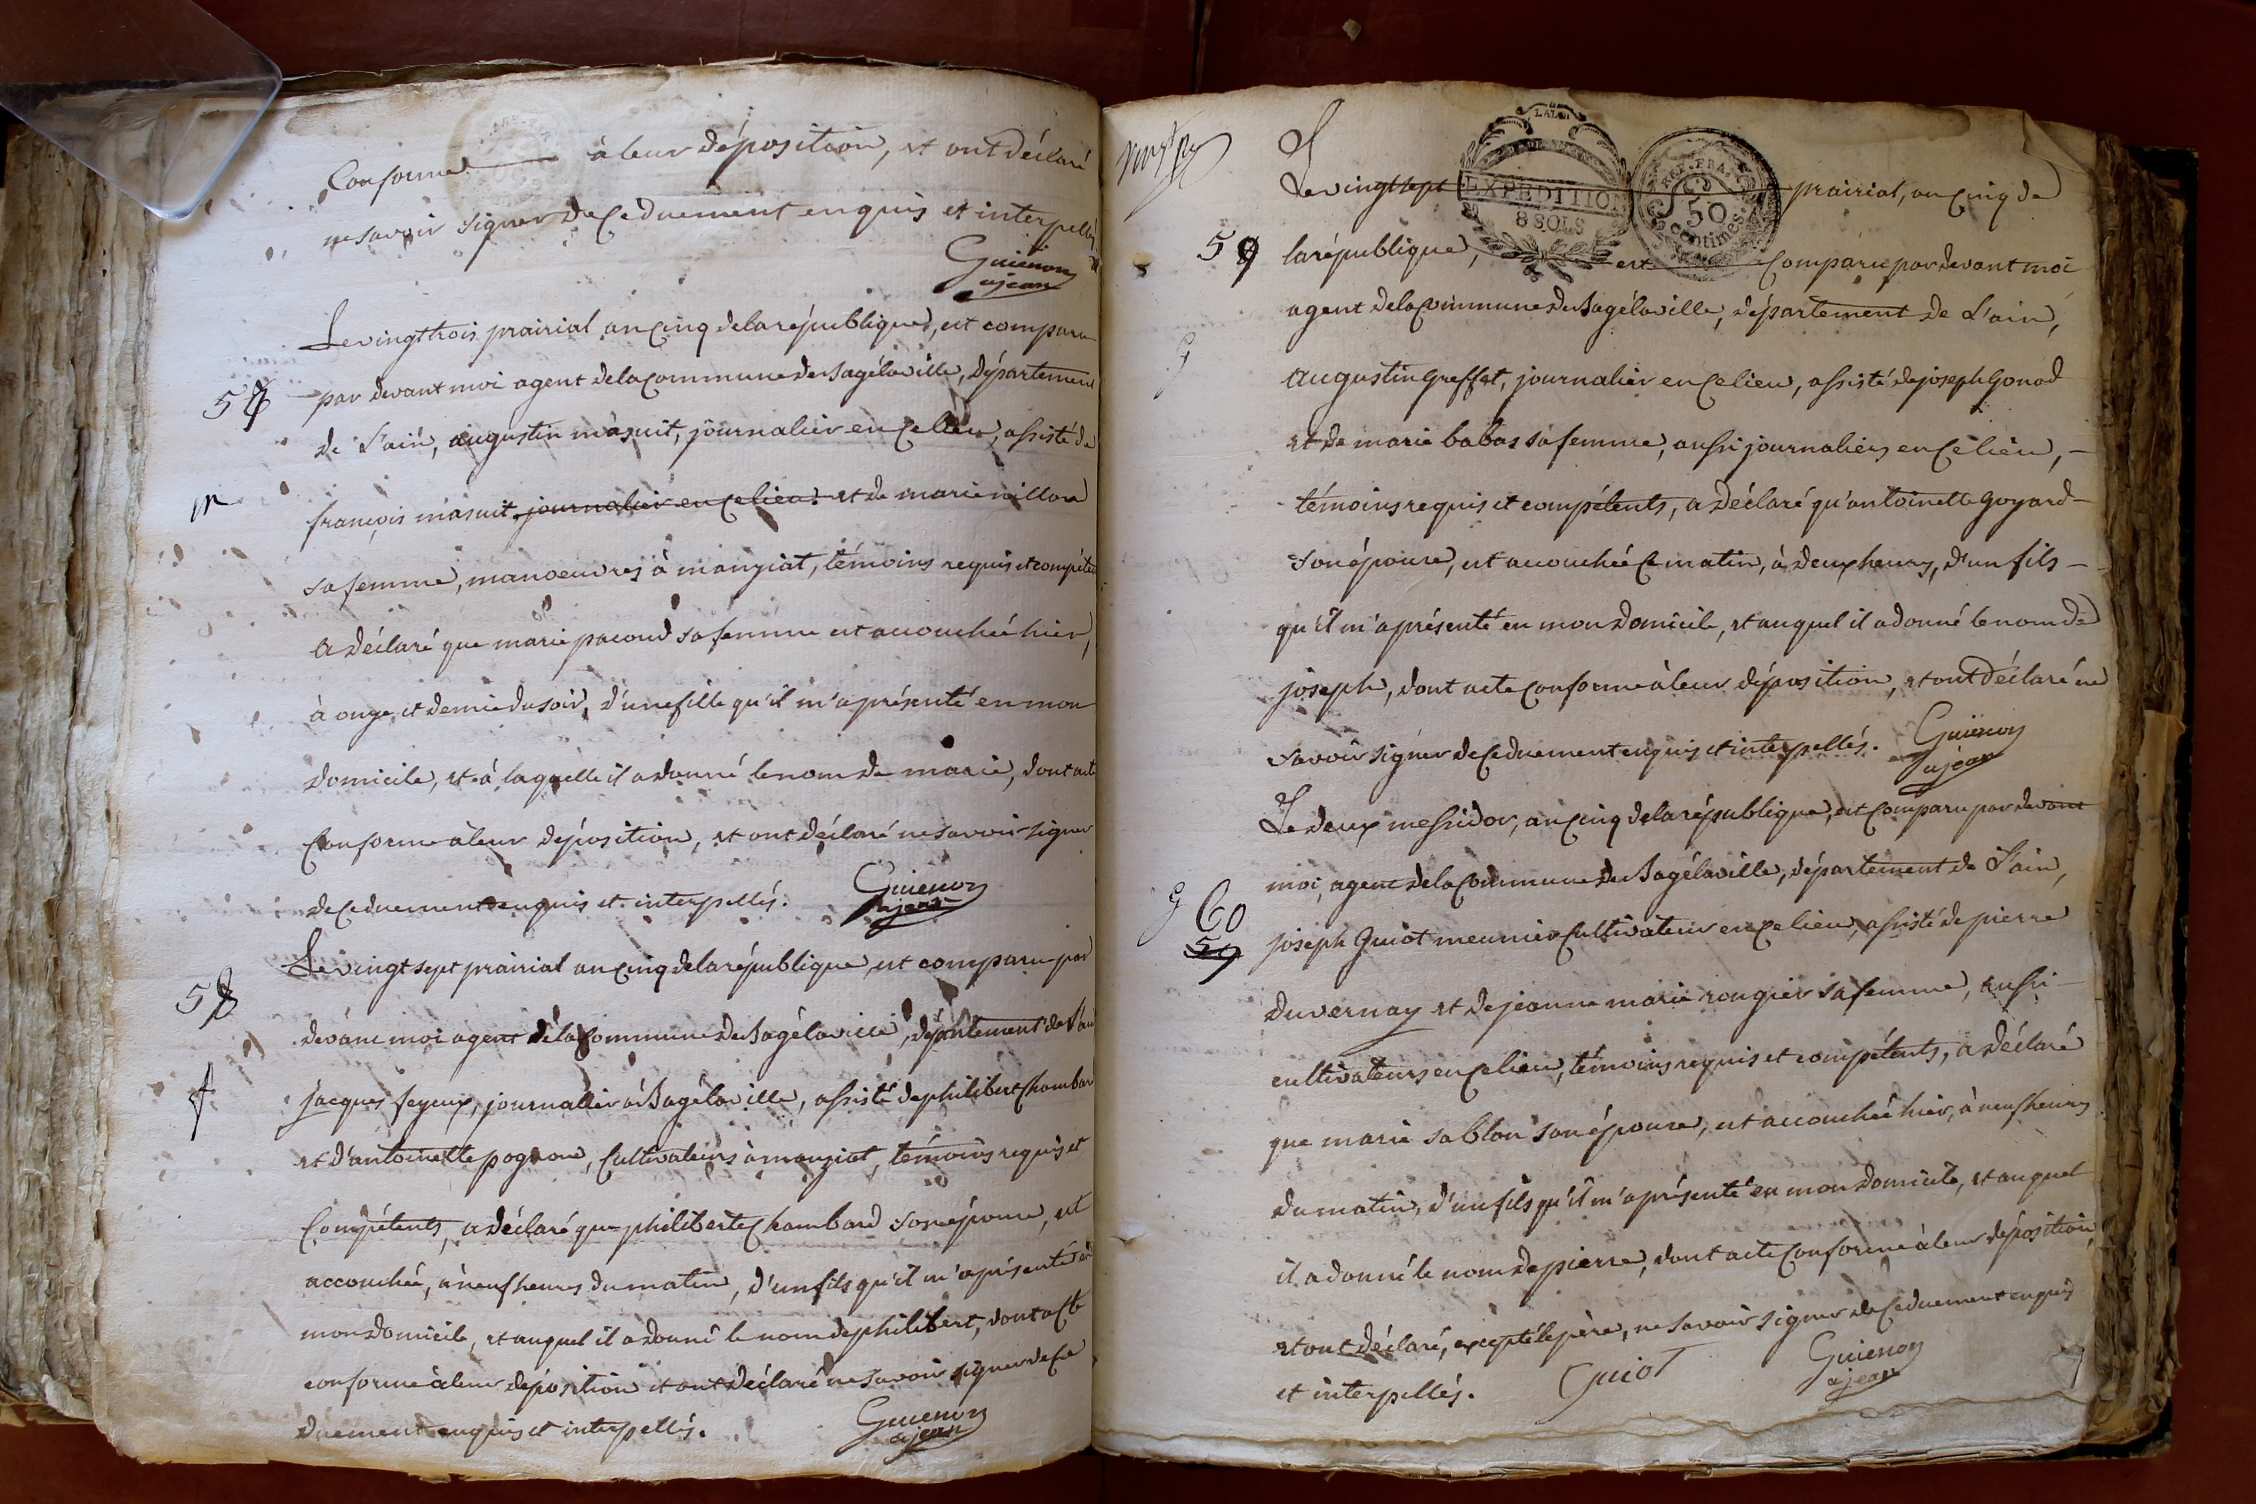 Conforme à leur déposition, et ont déclaré
ne savoir signer de ce duement enquis et interpellés
Guienon
agent
Le vingt trois prairial an cinq de la république, est comparu
57
par devant moi agent de la commune de Bagé la ville, département
de l'ain, augustin masuit, journalier en ce lieu, assisté de
m
françois masuit journalier en ce lieu et de marie
sa femme, manoeuvres à manziat, témoins requis et compétens
a déclaré que marie pacoud sa femme est accouchée hier,
à onze et demie du soir, d'une fille qu'il m'a présenté en mon
domicile, et à laquelle il a donné le nom de marie, dont acte
conforme à leur déposition, et ont déclaré ne savoir signer
de ce duement enquis et interpellés.
Guienon
agent
Le vingt sept prairial an cinq de la république, est comparu par
58
devant moi agent de la commune de Bagé la ville, département de l'ain
f
jacques feyeux, journalier à Bagé la ville, assisté de philibert Chambard
et d'antoinette pognon, cultivateurs à manziat, témoins requis et
compétents, a déclaré que philiberte Chambard son épouse, est
accouchée, à neuf heures du matin, d'un fils qu'il m'a présenté en
mon domicile, et auquel il a donné le nom de philibert, dont acte
conforme à leur déposition et ont déclaré ne savoir signer de ce
duement enquis et interpellés.
Guienon
agent
LAIN
EXPEDITION
8 SOLS
REP. FRA.
50
centimes
Le vingt sept prairial, an cinq de
59
la république, est comparu par devant moi
agent de la commune de Bagé la ville, département de l'ain,
g
augustin Greffet, journalier en ce lieu, assisté de joseph Gonod
et de marie babas sa femme, aussi journaliers en ce lieu,
témoins requis et compétents, a déclaré qu'antoinette Goyard
son épouse, est accouchée ce matin, à deux heures, d'un fils
qu'il m'a présenté en mon domicile, et auquel il a donné le nom de
joseph, dont acte conforme à leur déposition, et ont déclaré ne
savoir signer de ce duement enquis et interpellés.
Guienon
agent
Le deux messidor, an cinq de la république, est comparu par devant
moi, agent de la commune de Bagé la ville, département de l'ain,
g 60
59
joseph Guiot meunier cultivateur en ce lieu, assisté de pierre
duvernay et de jeanne marie rougier sa femme, aussi
cultivateurs en ce lieu, témoins requis et compétents, a déclaré
que marie sablon son épouse, est accouchée hier, à neuf heures
du matin, d'un fils qu'il m'a présenté en mon domicile, et auquel
il a donné le nom de pierre, dont acte conforme à leur déposition,
et ont déclaré, excepté le père, ne savoir signer de ce duement enquis
et interpellés.
Guiot
Guienon
agent